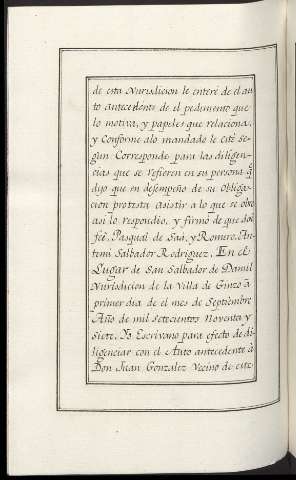 de esta Jurisdicion le enteré de el au
to antecedente de el pedimento que
lo motiva, y papeles que relaciona,
y conforme alo mandado le cité se-
gun Corresponde para las diligen-
cias que se refieren en su persona q
dijo que en desempeño de su Obliga-
cion protesta asistir a lo que se obre
asi lo respondio, y firmó de que doi
feé. Pasqual de Saá, y Romero. An-
temi Salbador Rodriguez. En el
Lugar de San Salbador de Damil
Jurisdicion de la Villa de Ginzo á
primer dia de el mes de Septiembre
Año de mil setecientos Noventa y
siete. Yo Escrivano para efecto de di-
ligenciar con el Auto antecedente á
Don Juan Gonzalez Vecino de este